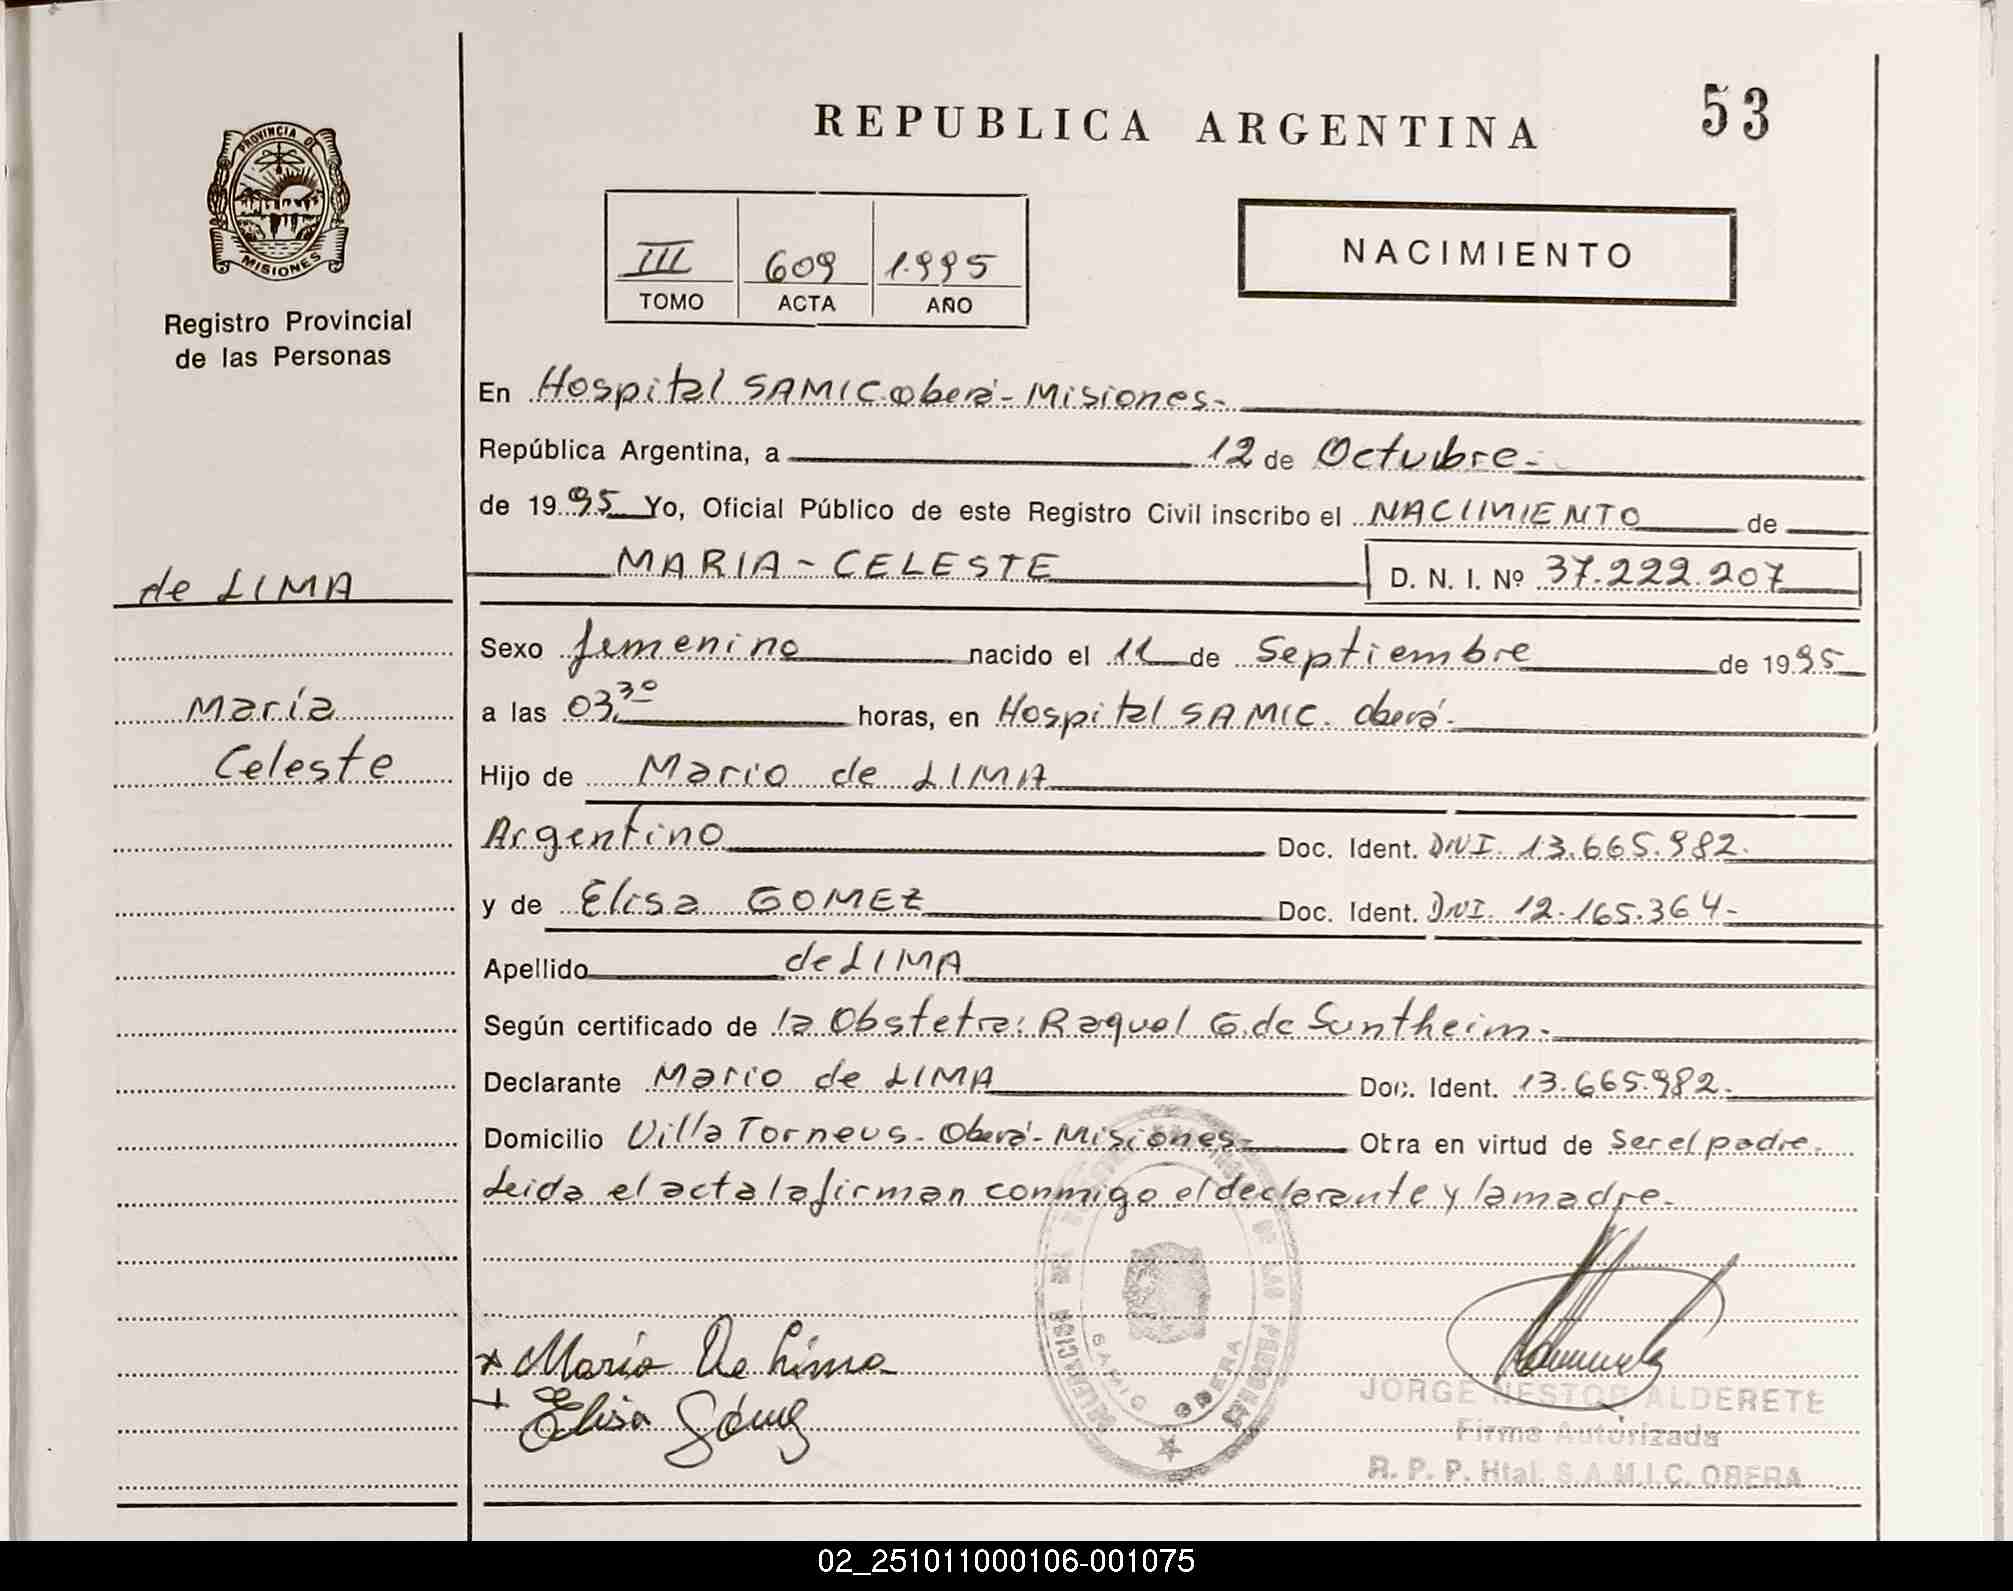 REPUBLICA ARGENTINA
53
PROVINCIA DE
MISIONES
Registro Provincial
de las Personas
III 609 1.995
TOMO ACTA AÑO
NACIMIENTO
En Hospital SAMIC Oberá - Misiones.-
República Argentina, a 12 de Octubre.-
de 1995 Yo, Oficial Público de este Registro Civil inscribo el NACIMIENTO de
MARIA - CELESTE D. N. I. Nº 37.222.207
de LIMA
María
Celeste
Sexo femenino nacido el 11 de Septiembre de 1995
a las 03,30 horas, en Hospital SAMIC. Oberá.-
Hijo de Mario de LIMA
Argentino Doc. Ident. DNI. 13.665.982.
y de Elisa GOMEZ Doc. Ident. DNI. 12.165.364-
Apellido de LIMA
Según certificado de la Obstetra: Raquel G. de Suntheim.-
Declarante Mario de LIMA Doc. Ident. 13.665.982.
Domicilio Villa Torneus - Oberá - Misiones Obra en virtud de Ser el padre.
Leida el acta la firman conmigo el declarante y la madre.
x Mario De Lima
+ Elisa Gómez
DE LAS PERSONAS
SAMIC OBERA
JORGE NESTOR ALDERETE
Firma Autorizada
R. P. P. Htal. S.A.M.I.C. OBERA
02_251011000106-001075